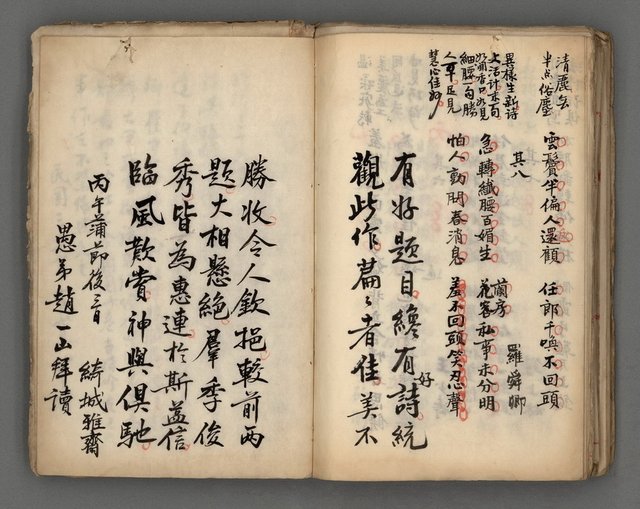 清麗無
半点俗塵
雲鬢半偏人還顧 任郎千喚不回頭
其八 蘭亭 羅舜卿
異樣生新詩
細腰一句勝
人
慧心佳妙
急轉纖腰百媚生 花客私事未分明
怕人勘問春消息 羞不回頭笑忍聲
有好題目纔有好詩統
觀此作篇〻者佳美不
勝收令人欽挹較前兩
題大相懸絕羣季俊
秀皆為惠連於斯益信
臨風歎賞神與俱馳
丙午蒲節後三日 綺城雅齋
愚弟趙一山拜讀